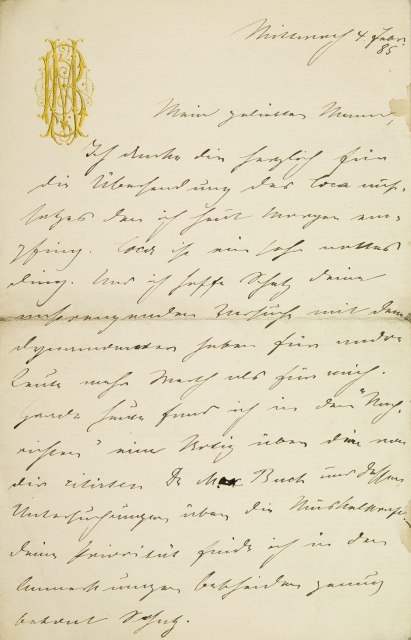 Mittwoch 4. Febr.
85
Mein geliebter Mann,
Ich danke dir herzlich für
die Übersendung des Coca auf-
satzes den ich heut Morgen em-
pfing. Coca ist ein sehr nettes
ding. Und ich hoffe Schatz deine
Versuche mit dem
dynamometer haben für andre
Leute mehr Werth als für mich.
grade heute fand ich in den "Nach-
richten" eine Notiz über den von
dir citirten Dr Max Buch und dessen
Untersuchungen über die Muskel
deine Priorität finde ich in den
Anmerkungen bescheiden genug
betont Schatz.